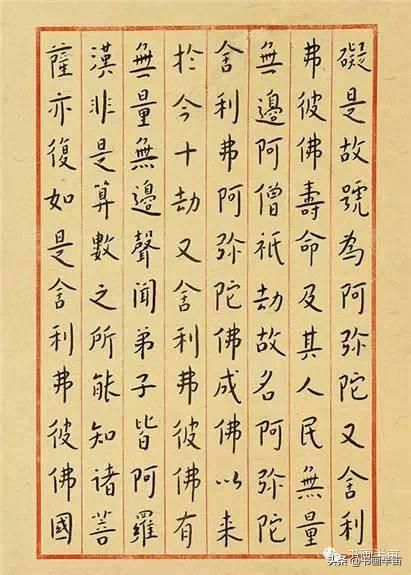 礙是故號為阿弥陀又舍利
弗彼佛壽命及其人民無量
無邊阿僧祇劫故名阿弥陀
舍利弗阿弥陀佛成佛以来
於今十劫又舍利弗彼佛有
無量無邊聲聞弟子皆阿羅
漢非是算數之所能知諸菩
薩亦復如是舍利弗彼佛國
头条 @书画半亩